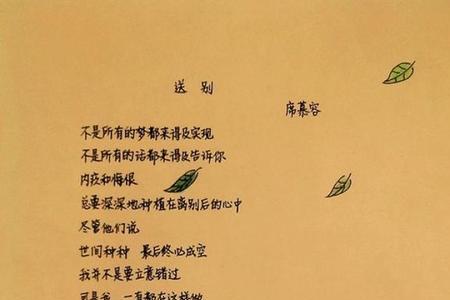 送 别
席慕容
不是所有的梦都来得及实现
不是所有的话都来得及告诉你
内疚和悔恨
总要深深地种植在离别后的心中
尽管他们说
世间种种 最后终必成空
我并不是要立意错过
可是我 一直都在这样做